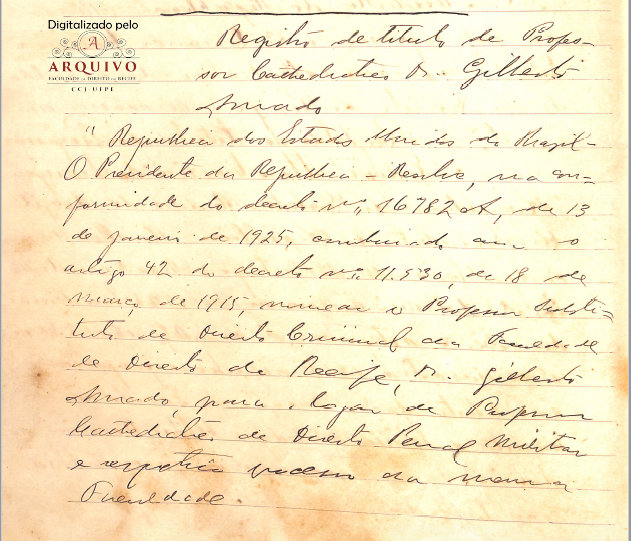 Digitalizado pelo
A
ARQUIVO
FACULDADE DE DIREITO DO RECIFE
CCJ-UFPE
Registro de titulo de Profes-
sor Cathedratico Dr. Gilberto
Amado
"Republica dos Estados Unidos do Brazil-
O Presidente da Republica - Resolve, na con-
formidade do decreto nº 16782 A, de 13
de janeiro de 1925, combinado com o
artigo 42 do decreto nº 11.530, de 18 de
março de 1915, nomear o Professor Substi-
tuto de Direito Criminal da Faculdade
de Direito do Recife, Dr. Gilberto
Amado, para o logar de Professor
Cathedratico de Direito Penal Militar
e respectivo processo da mesma
Faculdade.